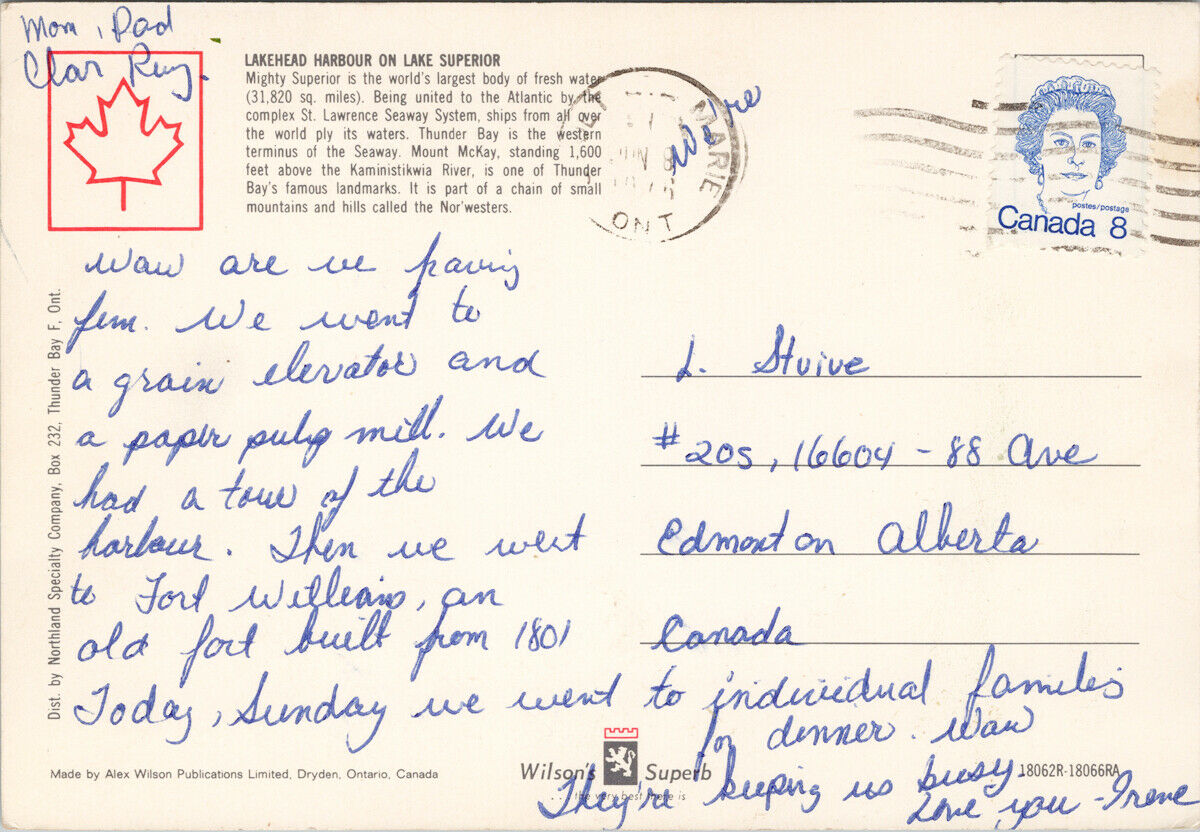 Mom, Dad
Clar Reny.
LAKEHEAD HARBOUR ON LAKE SUPERIOR
Mighty Superior is the world's largest body of fresh water
(31,820 sq. miles). Being united to the Atlantic by the
complex St. Lawrence Seaway System, ships from all over
the world ply its waters. Thunder Bay is the western
terminus of the Seaway. Mount McKay, standing 1,600
feet above the Kaministikwia River, is one of Thunder
Bay's famous landmarks. It is part of a chain of small
mountains and hills called the Nor'westers.
MARIE
ONT
We're
postes/postage
Canada 8
Waw are we having
fun. We went to
a grain elevator and
a paper pulp mill. We
had a tour of the
harbour. Then we went
to Fort William, an
old fort built from 1801
Today, Sunday we went to individual families
for dinner. Waw
They're keeping us busy.
Love you - Irene
L. Stuive
#205, 16604 - 88 Ave
Edmonton Alberta
Canada
Dist. by Northland Specialty Company, Box 232, Thunder Bay F, Ont.
Made by Alex Wilson Publications Limited, Dryden, Ontario, Canada
Wilson's Superb
...the very best there is
18062R-18066RA